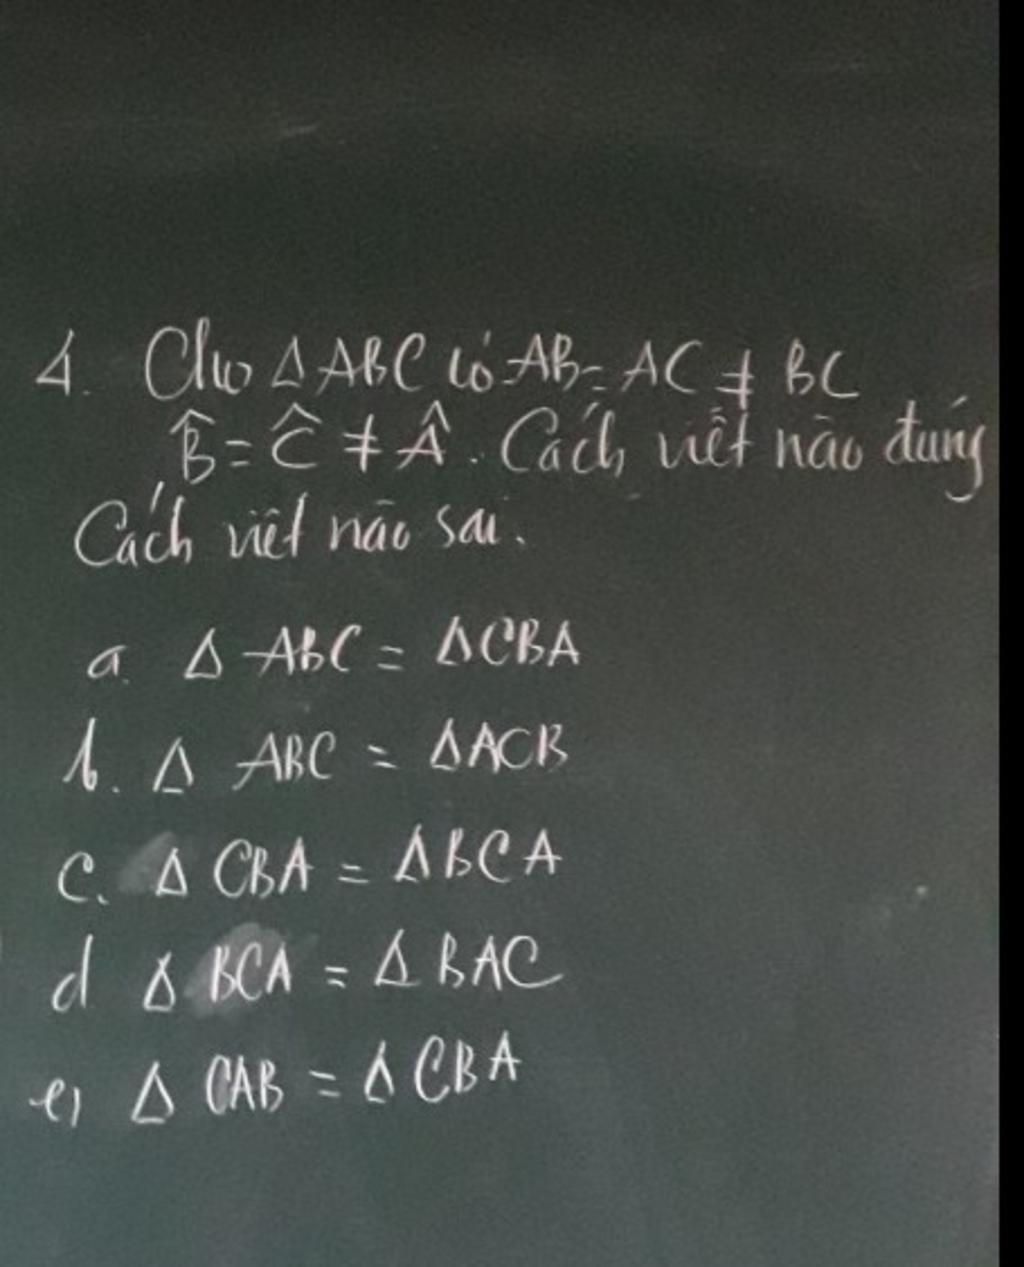 4. Cho Δ ABC có AB = AC ≠ BC
B̂ = Ĉ ≠ Â. Cách viết nào đúng
Cách viết nào sai.
a. Δ ABC = ΔCBA
b. Δ ABC = ΔACB
c. Δ CBA = ΔBCA
d Δ BCA = Δ BAC
e) Δ CAB = Δ CBA